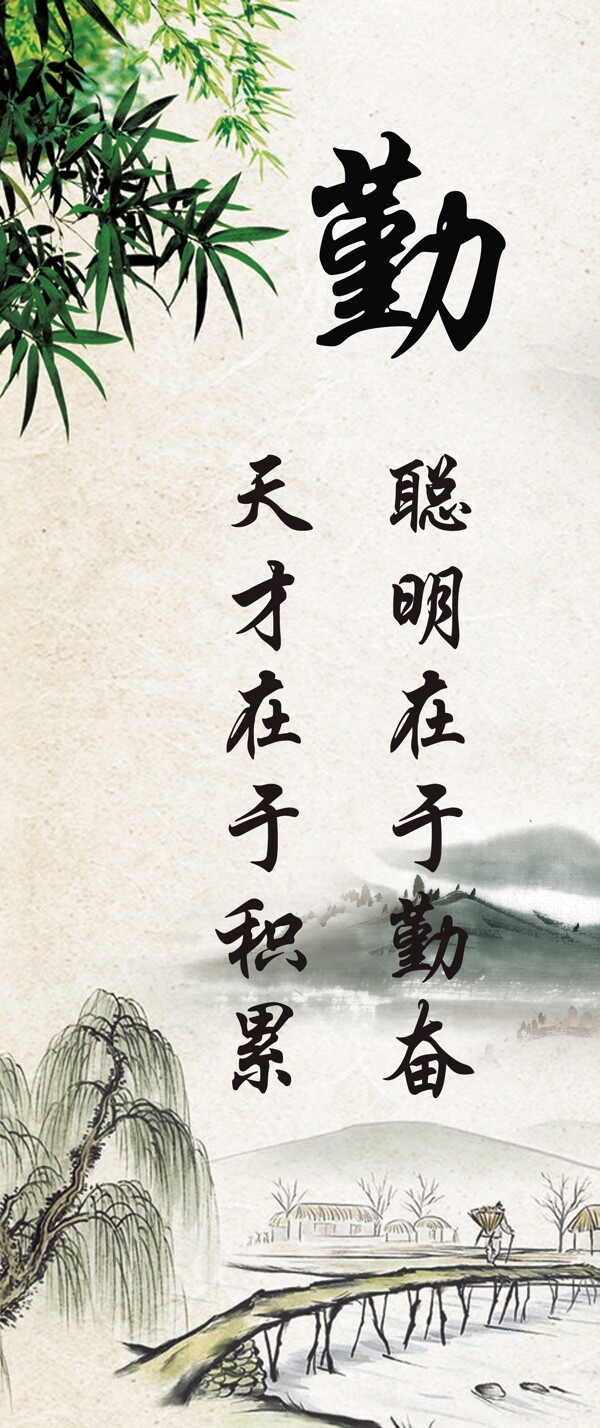 勤
聪明在于勤奋
天才在于积累